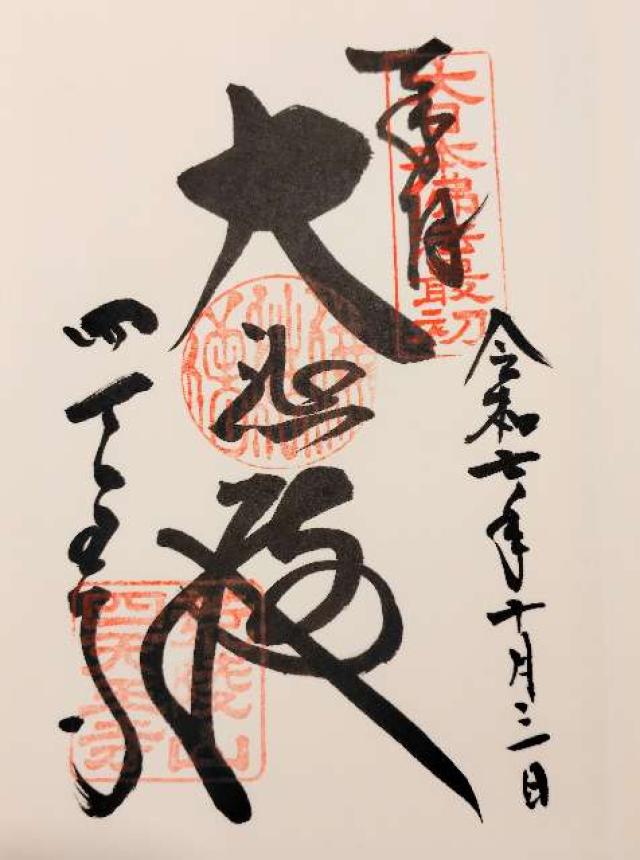 奉拝
大日本佛法最初
令和七年十月三日
大悲殿
四天王寺
荒陵山
四天王寺